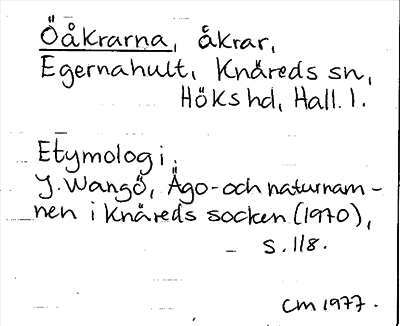 Öåkrarna, åkrar,
Egernahult, Knäreds sn,
Höks hd, Hall. l.
Etymologi.
J. Wangö, Ägo- och naturnam-
nen i Knäreds socken (1970),
s. 118.
CM 1977.